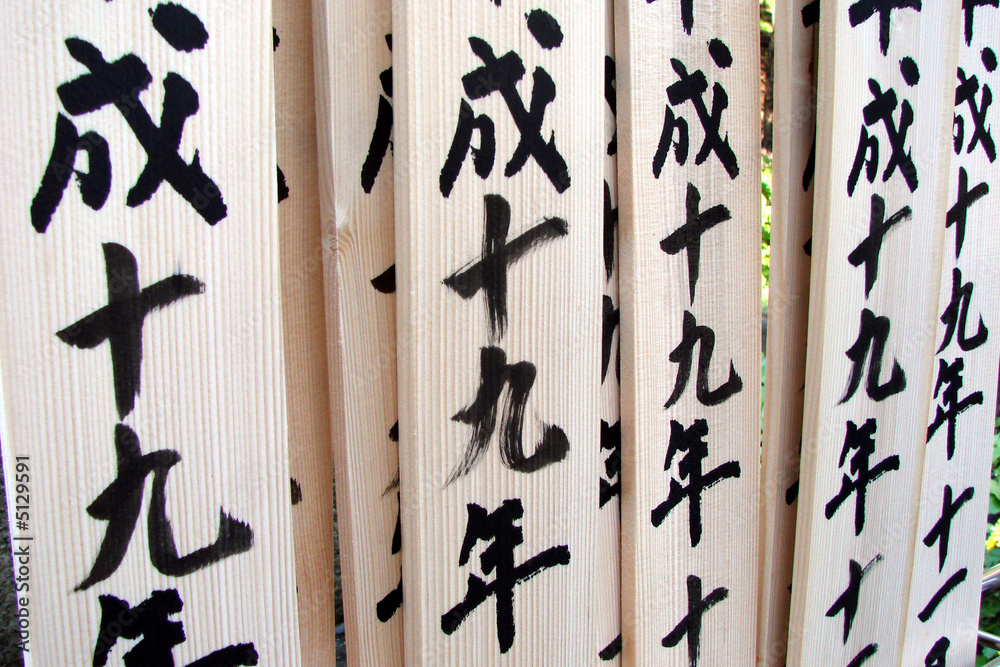 成十九年
成十九年
平成十九年十
平成十九年十
成十九年十一
Adobe Stock | #5129591